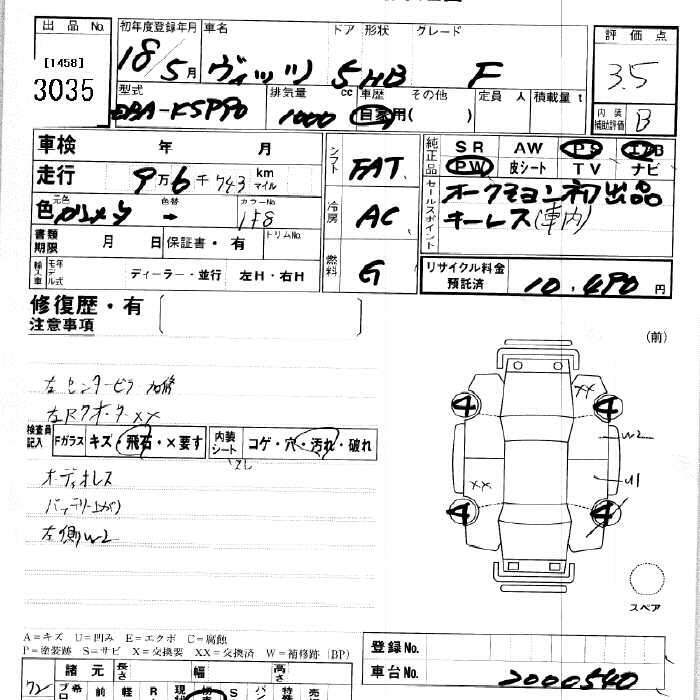 出品 No.
[1458]
3035
初年度登録年月 車名 ドア 形状 グレード
18/5月 ヴィッツ 5 HB F
評価点
3.5
内装補助評価 B
型式 排気量 cc 車歴 その他 定員 人 積載量 t
DBA-KSP90 1000 自家用( )
車検 年 月
走行 9万6千743 km マイル
色 元色 色替 カラーNo
ガンメタ → 1F8
書類期限 月 日 保証書・有 トリムNo.
輸入車 モデル年式 ディーラー・並行 左H・右H
シフト FAT
冷房 AC
燃料 G
純正品 SR AW PS エアB
PW 皮シート TV ナビ
セールスポイント
オークション初出品
キーレス(車内)
リサイクル料金預託済 10,490 円
修復歴・有
注意事項
(前)
左センターピラー 補修
左Rクオーター XX
検査員記入 Fガラス キズ・飛石・×要す 内装シート コゲ・穴・汚れ・破れ
オーディオレス
バッテリー上がり
左側W2
XX
4 4
W2
U1
XX
4 4
スペア
A=キズ U=凹み E=エクボ C=腐蝕
P=塗装跡 S=サビ X=交換要 XX=交換済 W=補修跡(BP)
登録No.
車台No. 2000540
72 諸元 長さ 幅 高さ